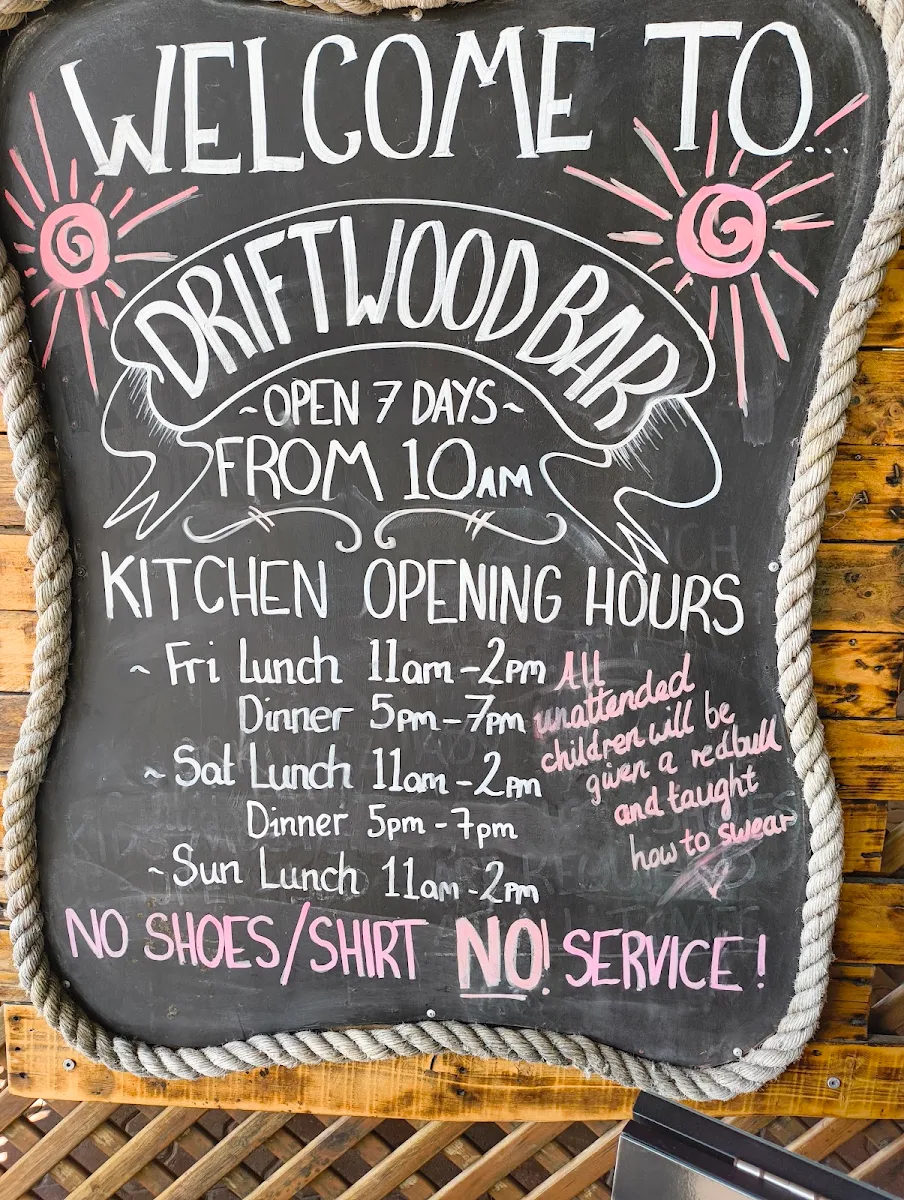 WELCOME TO...
DRIFTWOOD BAR
~OPEN 7 DAYS~
FROM 10AM
KITCHEN OPENING HOURS
~ Fri Lunch 11am-2pm
Dinner 5pm-7pm
~ Sat Lunch 11am-2pm
Dinner 5pm-7pm
~ Sun Lunch 11am-2pm
All
unattended
children will be
given a redbull
and taught
how to swear
NO SHOES/SHIRT NO! SERVICE!